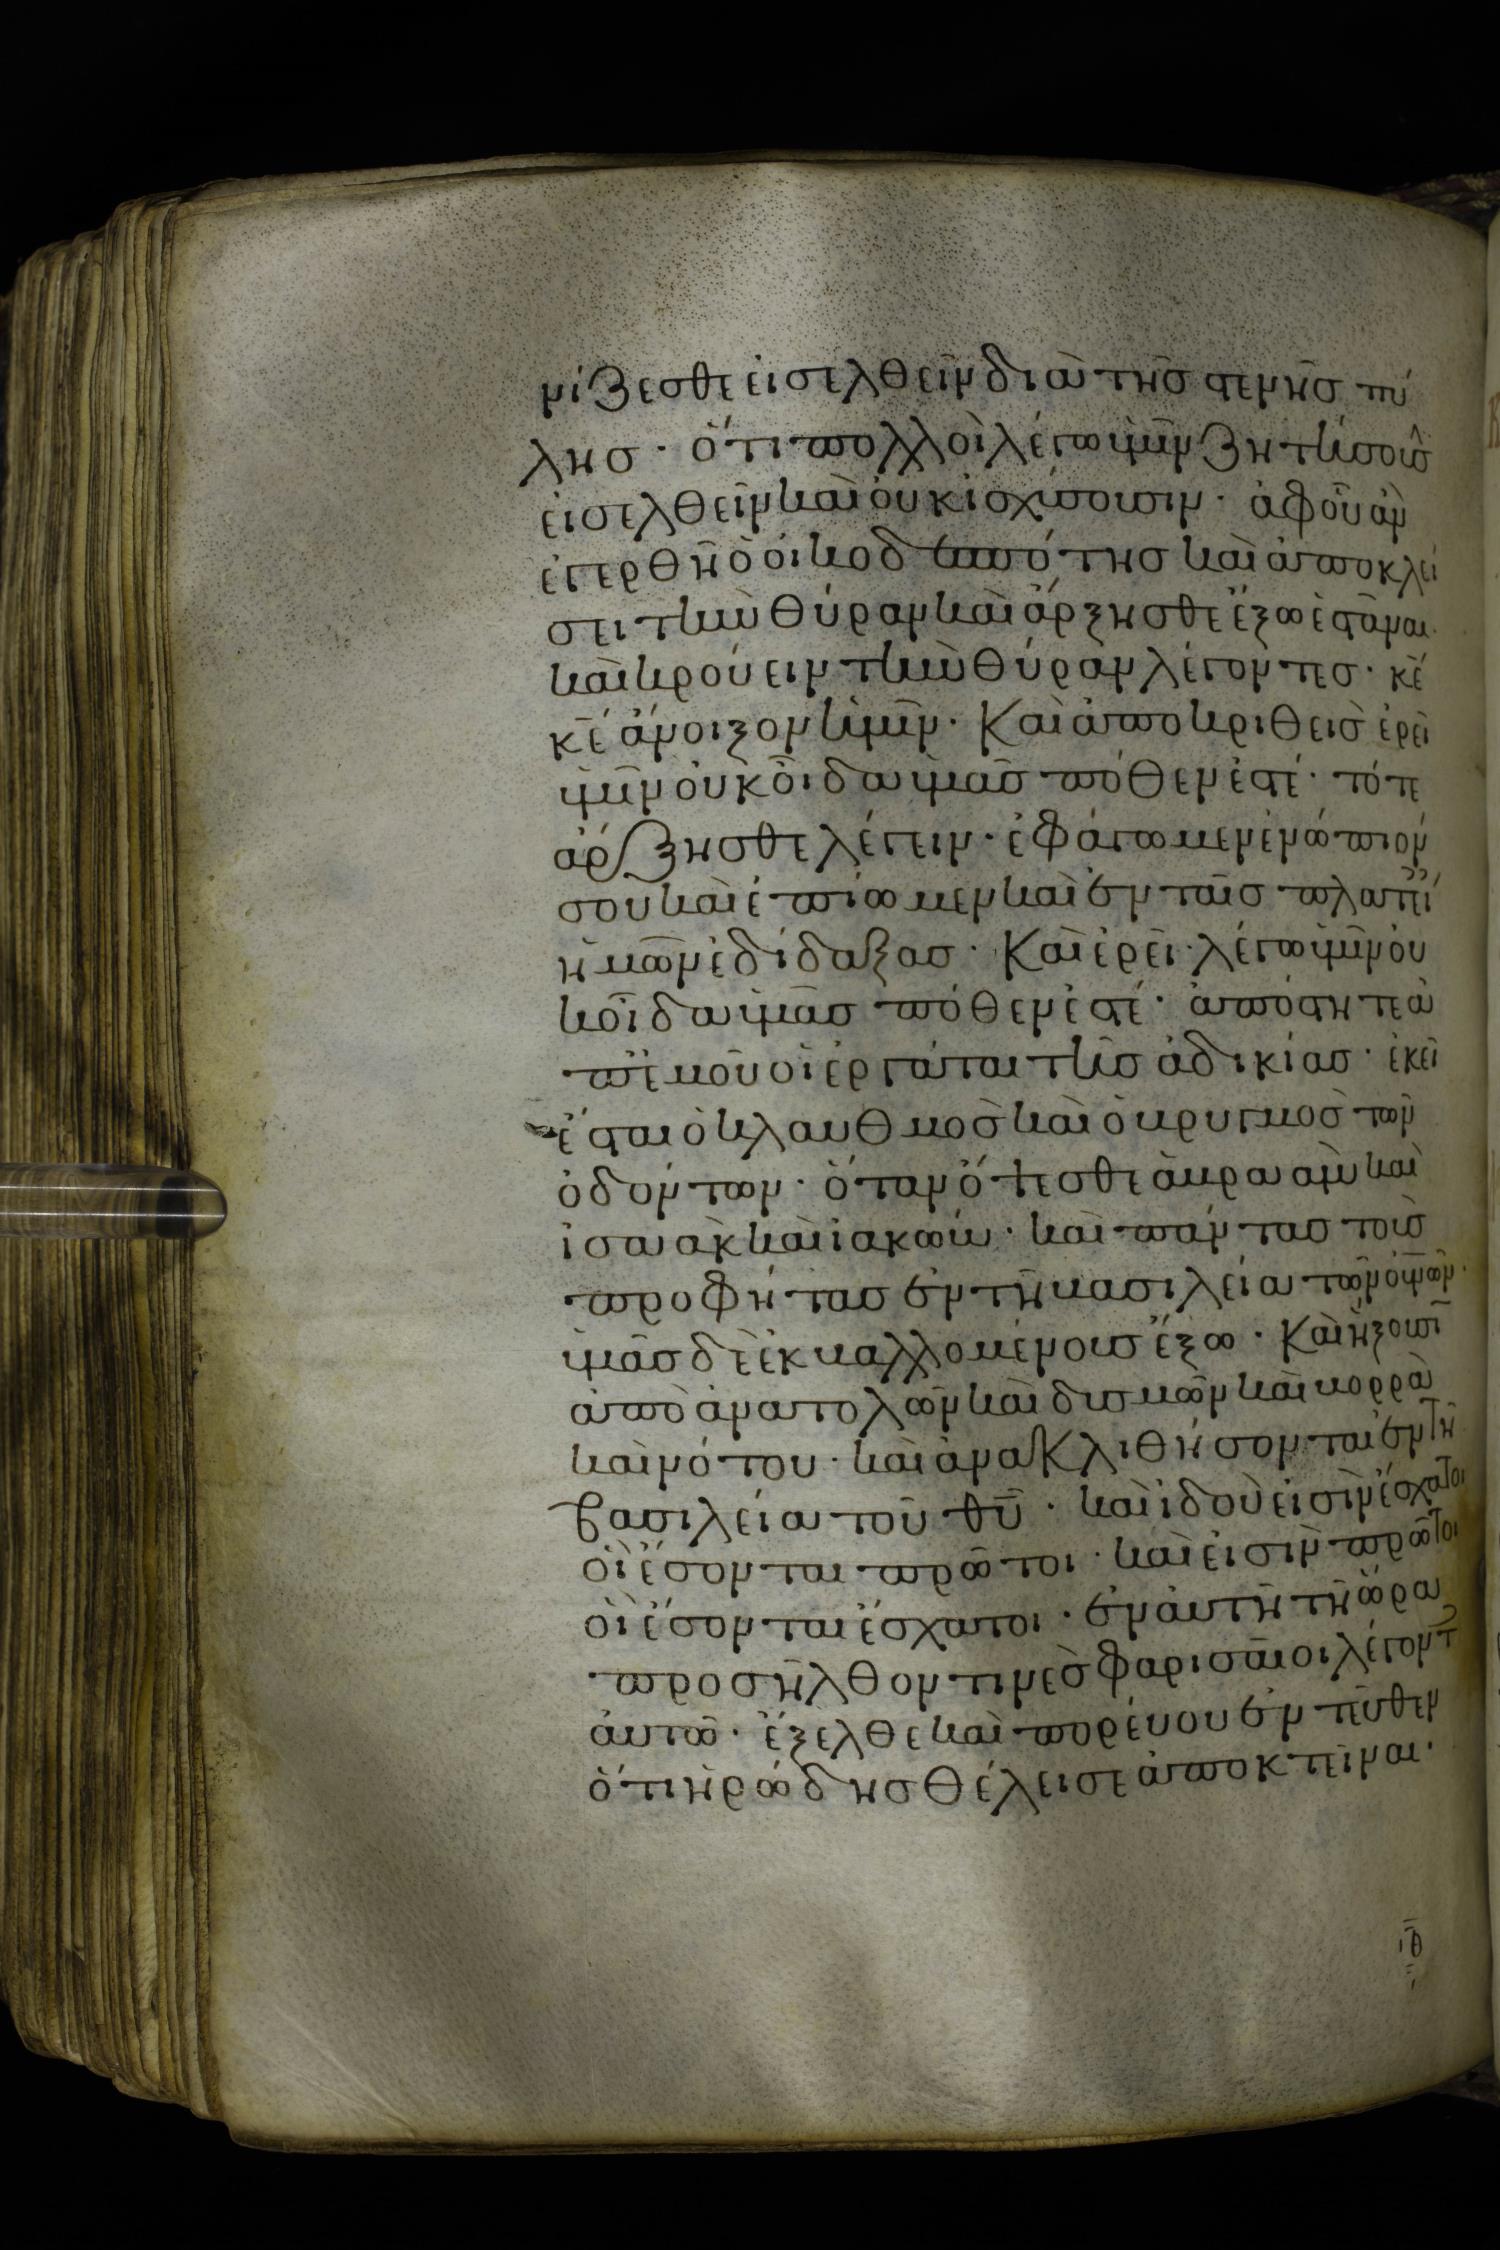 νίζεσθε εἰσελθεῖν διὰ τῆς στενῆς πύ
λης · ὅτι πολλοὶ λέγω ὑμῖν ζητήσουσ
εἰσελθεῖν καὶ οὐκ ἰσχύσουσιν · ἀφ οὗ ἂν
ἐγερθῆ ὁ οἰκοδεσπότης καὶ ἀποκλεί
σει τὴν θύραν καὶ ἄρξησθε ἔξω ἑστᾶναι ·
καὶ κρούειν τὴν θύραν λέγοντες · κε̅
κε̅ ἄνοιξον ἡμῖν · Καὶ ἀποκριθεὶς ἐρεῖ
ὑμῖν οὐκ οἶδα ὑμᾶς πόθεν ἐστέ · τότε
ἄρξησθε λέγειν · ἐφάγωμεν ἐνώπιον
σου καὶ ἐπίωμεν καὶ ἐν ταῖς πλατεί
ἡμῶν ἐδίδαξας · Καὶ ἐρεῖ · λέγω ὑμῖν οὐ
κ οἶδα ὑμᾶς πόθεν ἐστέ · ἀπόστητε ἀ
π ἐμοῦ οἱ ἐργάται τῆς ἀδικίας · ἐκεῖ
ἔσται ὁ κλαυθμὸς καὶ ὁ βρυγμὸς τῶν
ὀδόντων · ὅταν ὄψεσθε ἀβραὰμ καὶ
ἰσαὰκ καὶ ἰακώβ · καὶ πάντας τοὺς
προφήτας ἐν τῆ βασιλεία τῶν οὐνῶν ·
ὑμᾶς δὲ ἐκβαλλομένους ἔξω · Καὶ ἥξουσι
ἀπὸ ἀνατολῶν καὶ δυσμῶν καὶ βορρᾶ
καὶ νότου · καὶ ἀνακλιθήσονται ἐν τῆ
βασιλεία τοῦ θυ̅ · καὶ ἰδοὺ εἰσὶν ἔσχατοι
οἳ ἔσονται πρῶτοι · καὶ εἰσὶν πρῶτοι
οἳ ἔσονται ἔσχατοι · ἐν αὐτῆ τῆ ὥρα
προσῆλθον τινὲς φαρισαῖοι λέγοντ
αὐτῶ · ἔξελθε καὶ πορεύου ἐντεῦθεν
ὅτι ἡρώδης θέλει σε ἀποκτεῖναι ·
ιθ